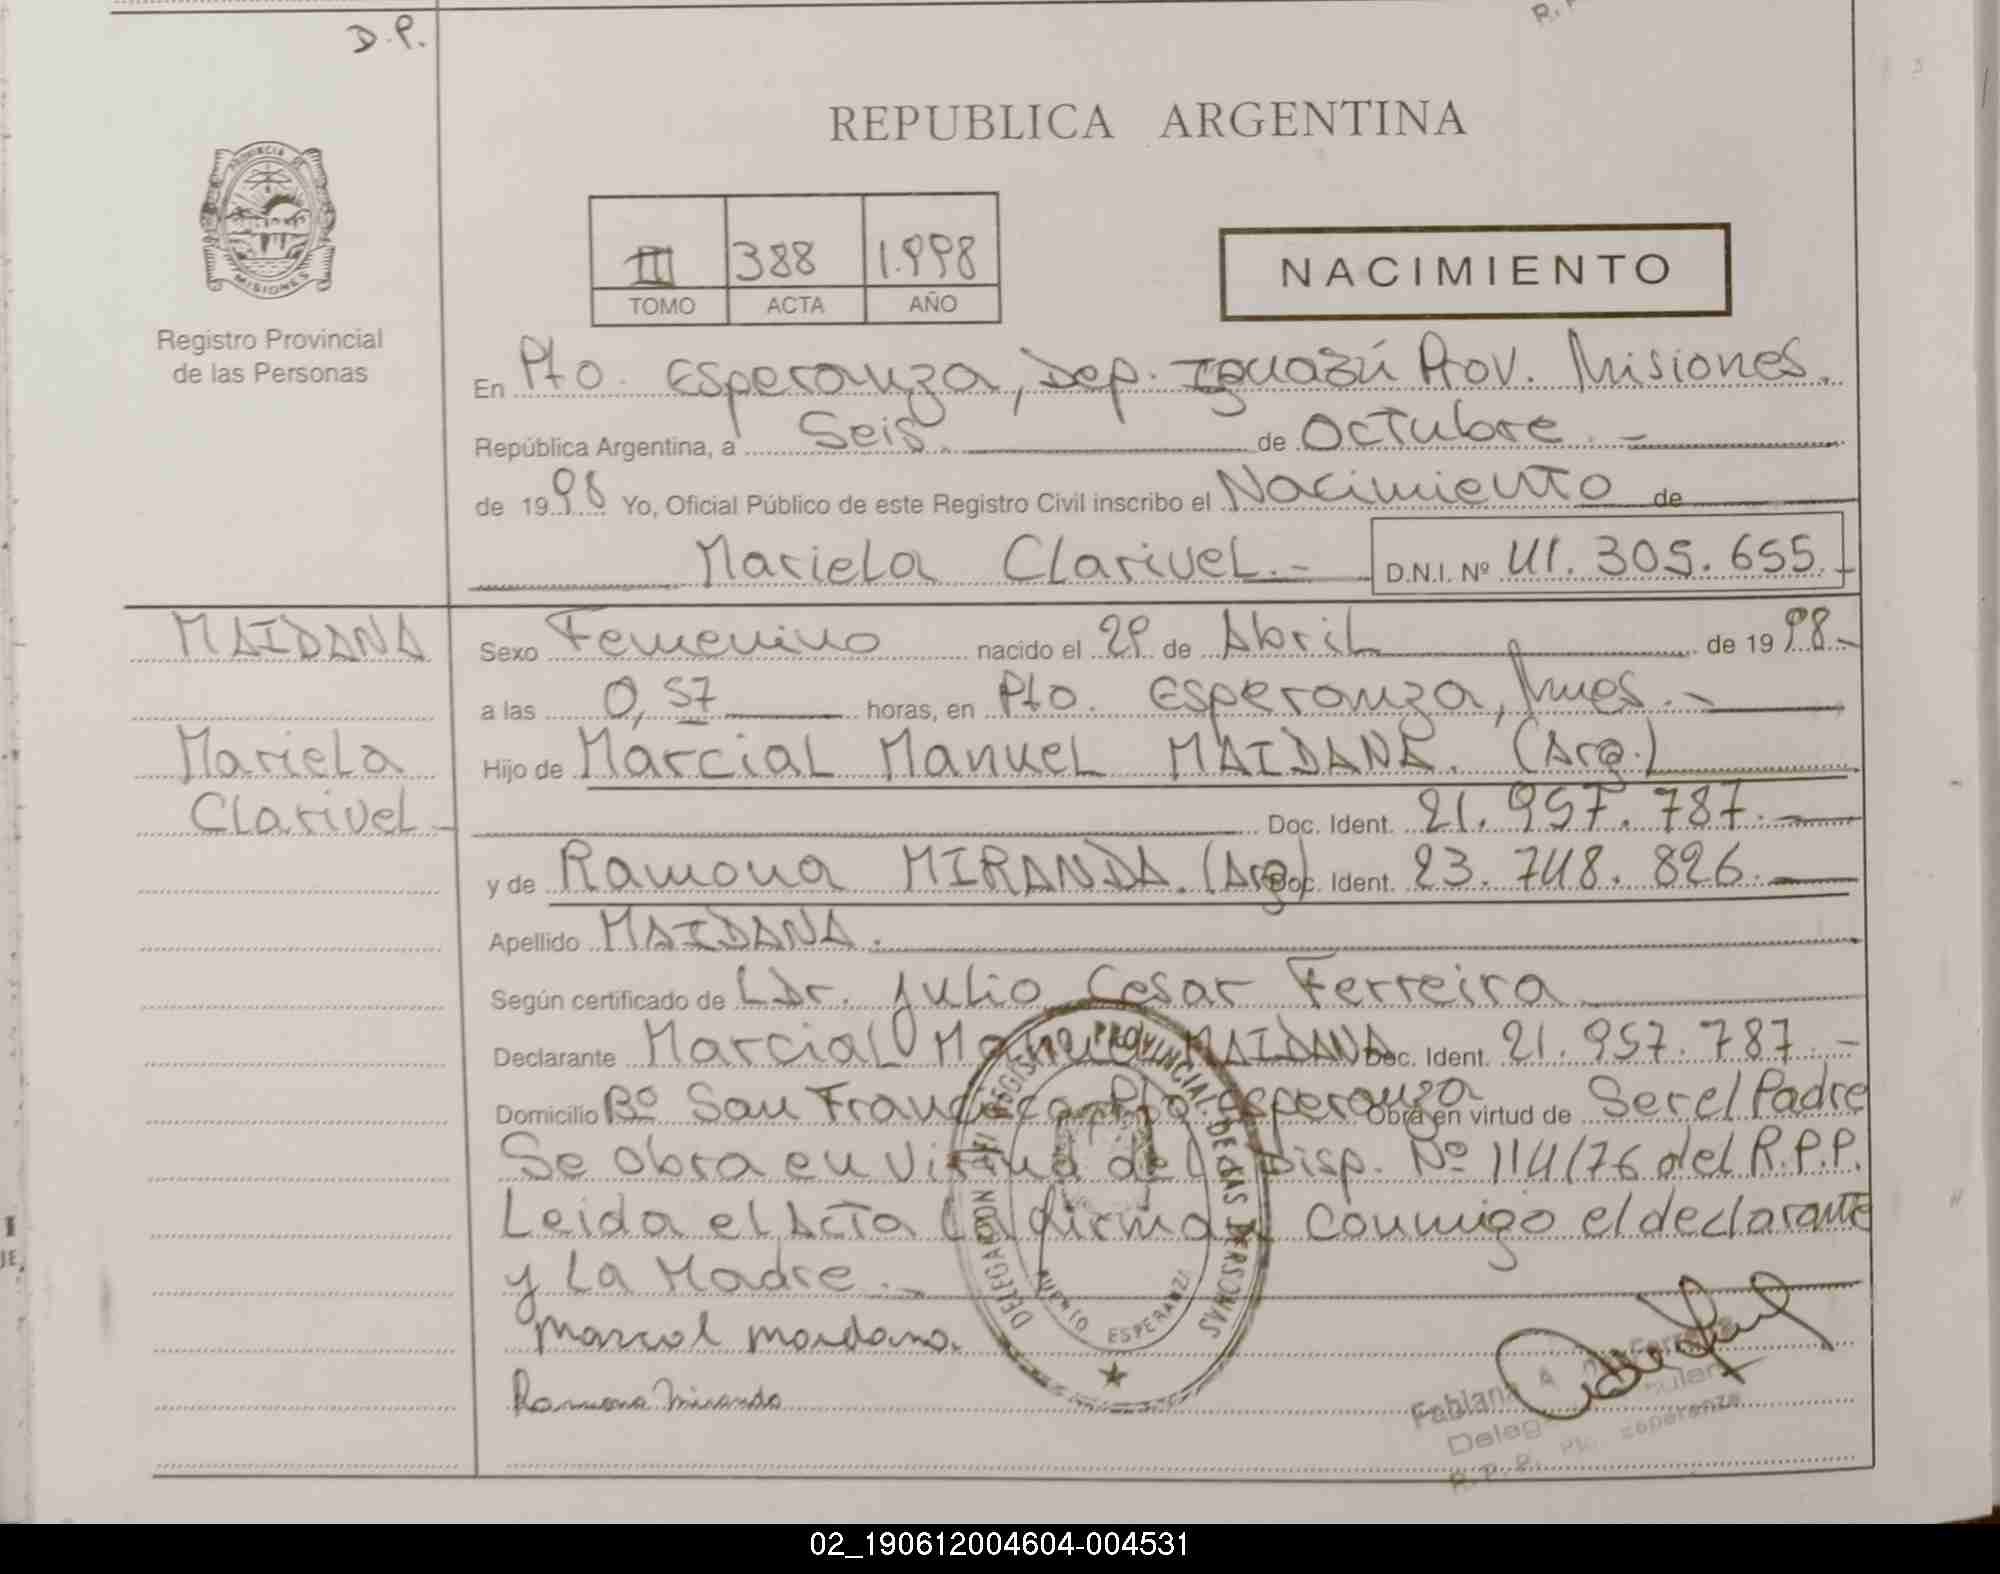 D.P.
R.P.
REPUBLICA ARGENTINA
PROVINCIA DE
MISIONES
Registro Provincial
de las Personas
III 388 1.998
TOMO ACTA AÑO
NACIMIENTO
En Pto. Esperanza, Dep. Iguazú Prov. Misiones.
República Argentina, a Seis. de Octubre. -
de 1998 Yo, Oficial Público de este Registro Civil inscribo el Nacimiento de
Mariela Clarivel.- D.N.I. Nº 41.305.655.-
MAIDANA
Sexo Femenino nacido el 29 de Abril de 1998.-
a las 0,57 horas, en Pto. Esperanza, Mnes.-
Mariela
Hijo de Marcial Manuel MAIDANA. (Arg.)
Clarivel-
Doc. Ident. 21.957.787.-
y de Ramona MIRANDA. (Arg) Doc. Ident. 23.748.826.-
Apellido MAIDANA.
Según certificado de L Dr. Julio Cesar Ferreira
Declarante Marcial Manuel MAIDANA Doc. Ident. 21.957.787.-
Domicilio Bº San Francisco Pto. Esperanza Obra en virtud de Ser el Padre
Se obra en virtud de la Disp. Nº 114/76 del R.P.P.
Leida el Acta la firman conmigo el declarante
y La Madre.-
DELEGACION REGISTRO PROVINCIAL DE LAS PERSONAS
PUERTO ESPERANZA
Marcial Maidana.
Ramona Miranda
Fabiana A.
Deleg
R.P.P. Pto. Esperanza
02_190612004604-004531